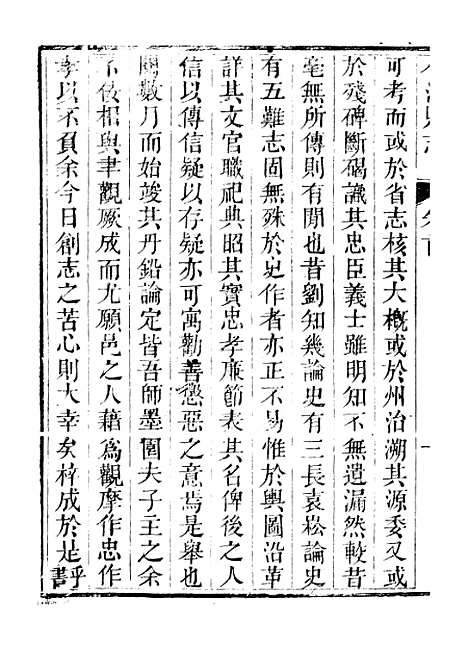 可考而或於省志核其大概或於州治溯其源委又或
於殘碑斷碣識其忠臣義士雖明知不無遺漏然較昔
毫無所傳則有閒也昔劉知幾論史有三長袁崧論史
有五難志固無殊於史作者亦正不易惟於輿圖沿革
詳其文官職祀典昭其實忠孝廉節表其名俾後之人
信以傳信疑以存疑亦可寓勸善懲惡之意焉是舉也
閱數月而始竣其丹鉛論定皆吾師墨園夫子主之余
不佞相與聿觀厥成而尤願邑之人藉為觀摩作忠作
孝以不負余今日創志之苦心則大幸矣梓成於是乎書